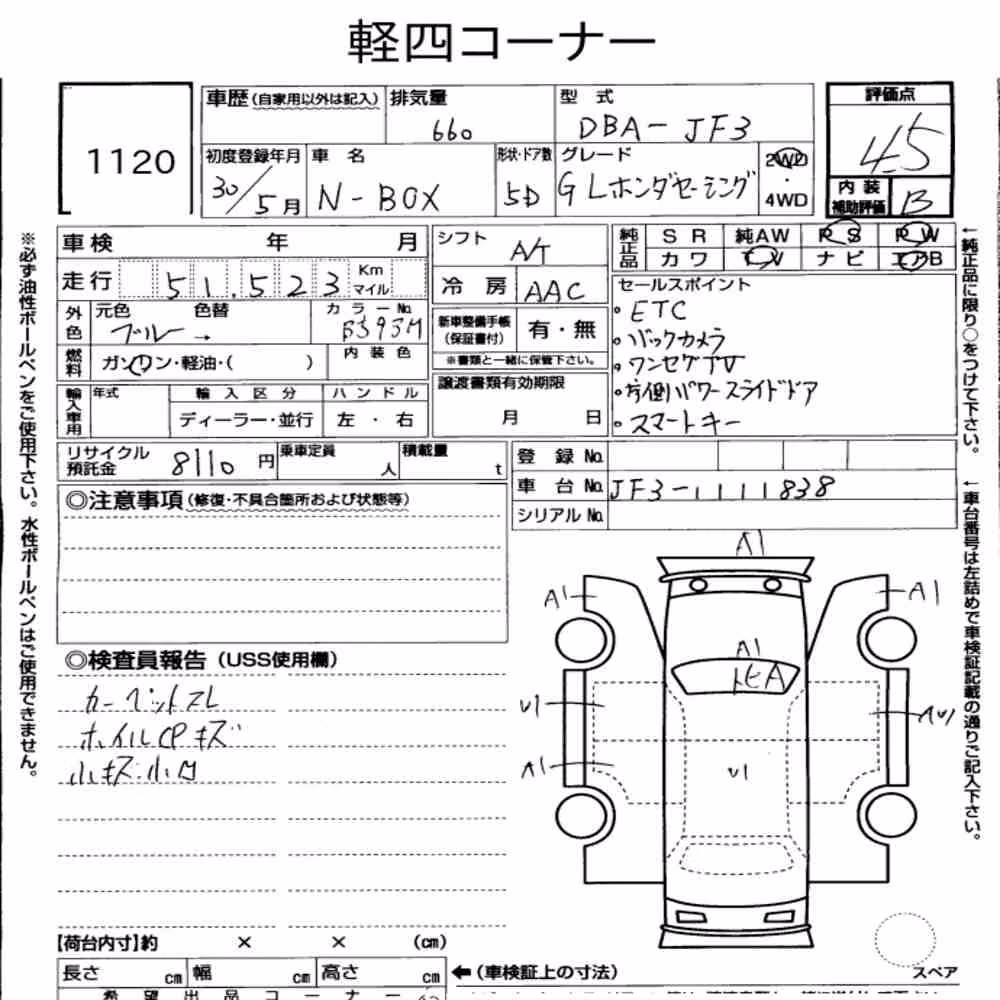 軽四コーナー
1120
車歴(自家用以外は記入) 排気量 660
型式 DBA-JF3
評価点 4.5
初度登録年月 30/5月
車名 N-BOX
形状・ドア数 5D
グレード G Lホンダセーシング
2WD・4WD
内装補助評価 B
車検 年 月
シフト A/T
純正品 SR 純AW PS PW
カワ TV ナビ エアB
走行 51,523 Km マイル
冷房 AAC
セールスポイント
・ETC
・バックカメラ
・ワンセグTV
・片側パワースライドドア
・スマートキー
外色 元色 色替 カラーNo.
ブルー → B593M
新車整備手帳(保証書付) 有・無
※書類と一緒に保管下さい。
燃料 ガソリン・軽油・( )
内装色
譲渡書類有効期限
月 日
輸入車用 年式 輸入区分 ハンドル
ディーラー・並行 左・右
リサイクル預託金 8110円
乗車定員 人
積載量 t
登録No.
車台No. JF3-1111838
シリアルNo.
◎注意事項(修復・不具合箇所および状態等)
◎検査員報告(USS使用欄)
カーペットスレ
ホイルCPキズ
小キズ小凹
A1
A1
A1
A1
トビA
U1
AU1
A1
U1
スペア
【荷台内寸】約 × × (cm)
長さ cm 幅 cm 高さ cm
←(車検証上の寸法)
希望出品コーナー
※必ず油性ボールペンをご使用下さい。水性ボールペンはご使用できません。
←純正品に限り○をつけて下さい。
←車台番号は左詰めで車検証記載の通りご記入下さい。